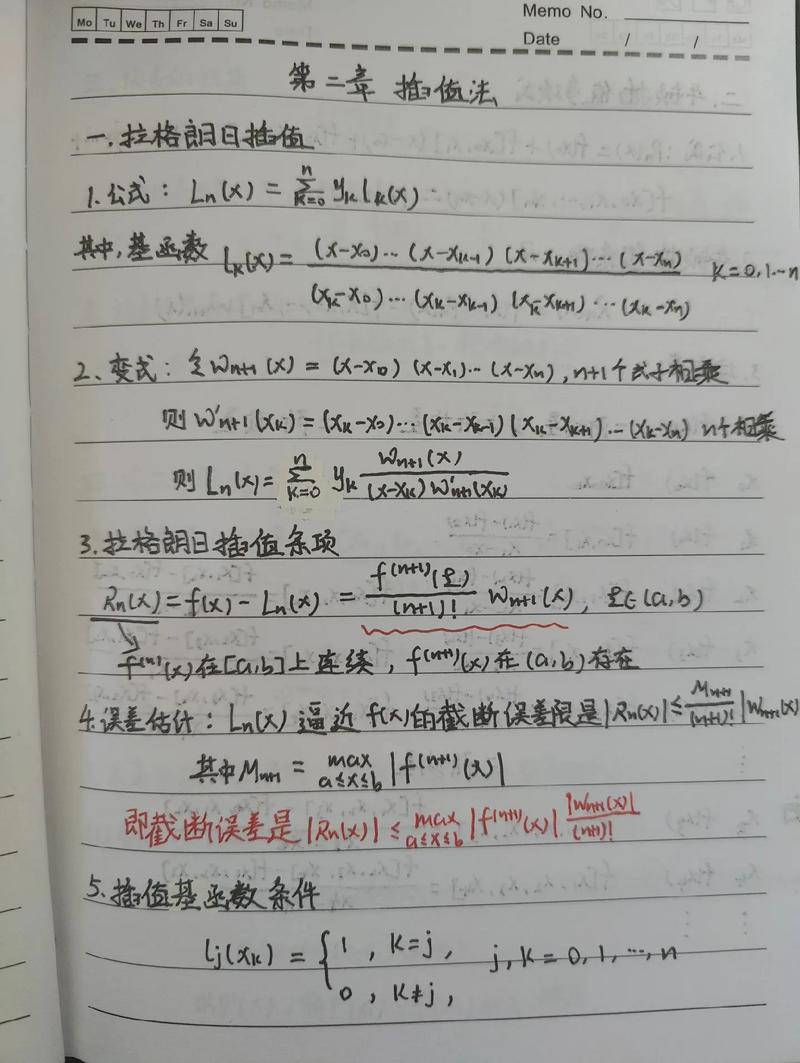 Mo Tu We Th Fr Sa Su
Memo No.
Date / /
第二章 插值法
一.拉格朗日插值
1.公式：Ln(x) = Σ_{k=0}^{n} yk lk(x)
其中,基函数 lk(x) = (x-x0)…(x-xk-1)(x-xk+1)…(x-xn) / (xk-x0)…(xk-xk-1)(xk-xk+1)…(xk-xn) K=0,1…n
2、变式：令Wn+1(x) = (x-x0)(x-x1)…(x-xn), n+1个式子相乘
则W'n+1(xk) = (xk-x0)…(xk-xk-1)(xk-xk+1)…(xk-xn) n个相乘
则 Ln(x) = Σ_{k=0}^{n} yk Wn+1(x) / (x-xk)W'n+1(xk)
3.拉格朗日插值余项
Rn(x) = f(x) - Ln(x) = f^(n+1)(ξ) / (n+1)! Wn+1(x), ξ∈(a,b)
f^(n)(x)在[a,b]上连续, f^(n+1)(x)在(a,b)存在
4.误差估计：Ln(x)逼近f(x)的截断误差限是|Rn(x)| ≤ Mn+1 / (n+1)! |Wn+1(x)
其中Mn+1 = max_{a≤x≤b} |f^(n+1)(x)|
即截断误差是|Rn(x)| ≤ max_{a≤x≤b} |f^(n+1)(x)| |Wn+1(x)| / (n+1)!
5.插值基函数条件
lj(xk) = { 1, K=j, j,K=0,1,…,n
0, K≠j,